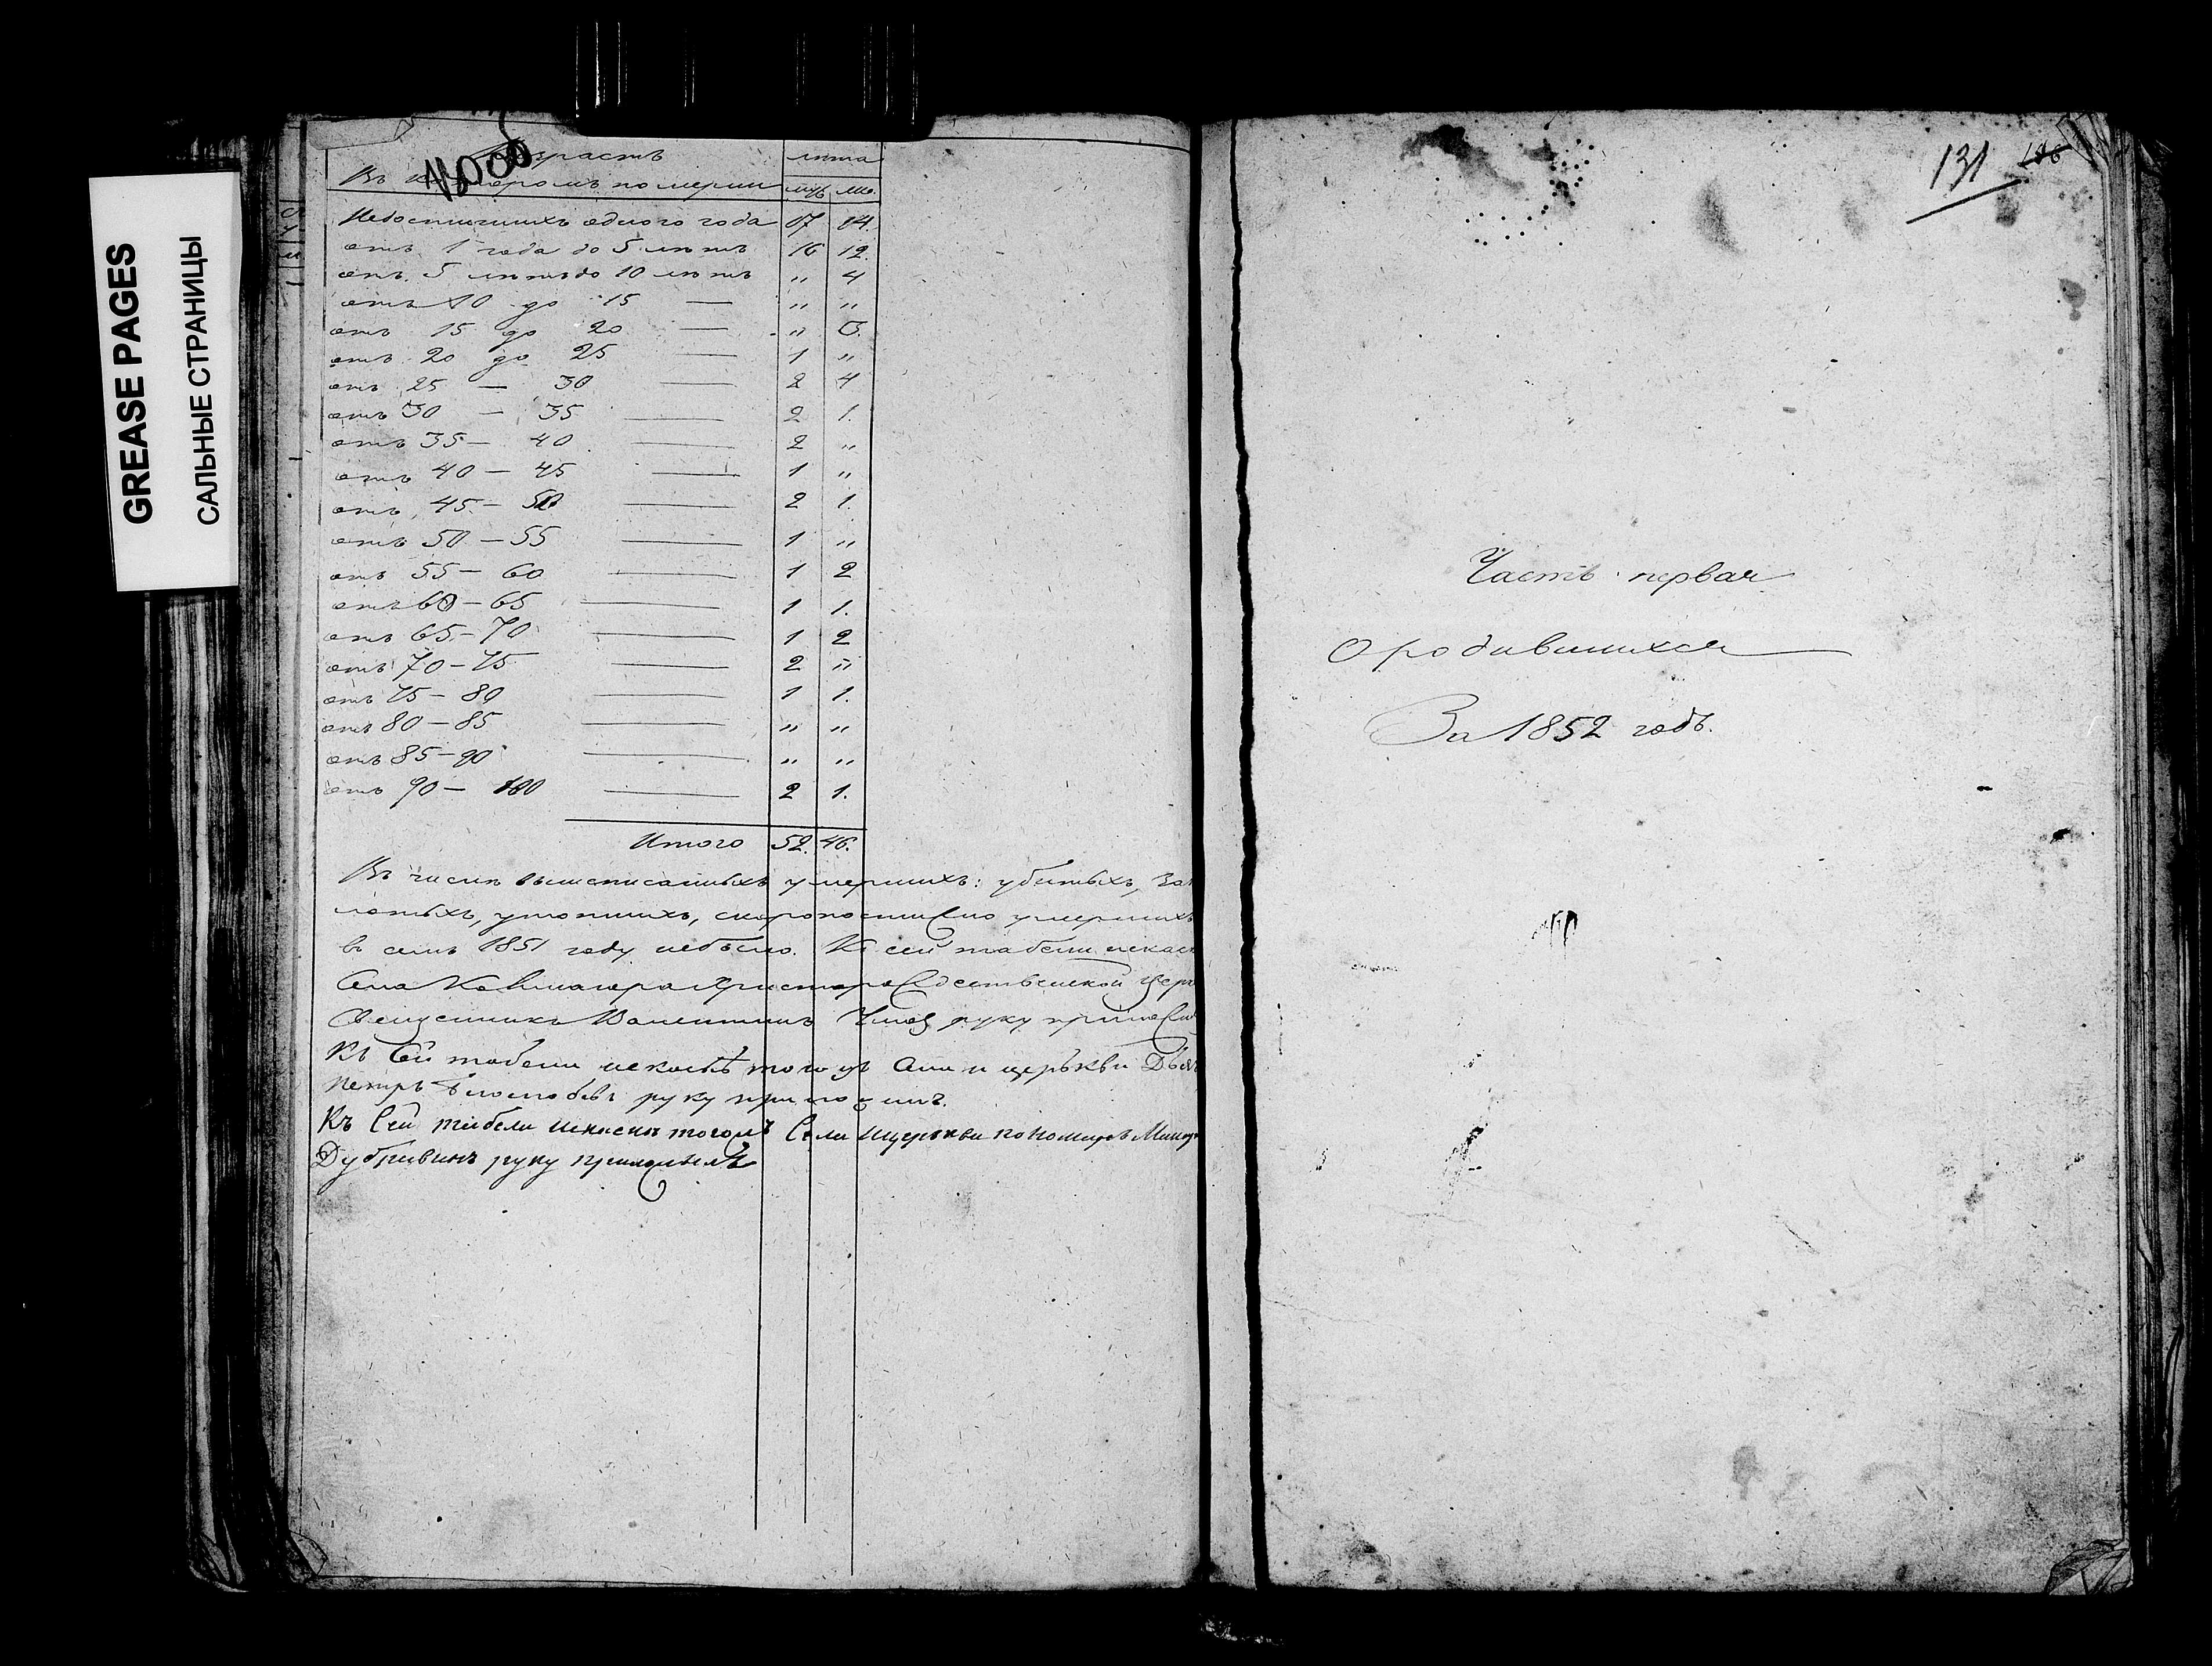 GREASE PAGES
САЛЬНЫЕ СТРАНИЦЫ
Возрастъ лѣта
Въ которомъ померли муж. же.
Недостигшихъ одного года 17 14.
отъ 1 года до 5 лѣтъ 16 12.
отъ 5 лѣтъ до 10 лѣтъ „ 4
отъ 10 до 15 — „ „
отъ 15 до 20 — „ 3.
отъ 20 до 25 — 1 „
отъ 25 — 30 — 2 4
отъ 30 — 35 — 2 1.
отъ 35 — 40 — 2 „
отъ 40 — 45 — 1 „
отъ 45 — 50 — 2 1.
отъ 50 — 55 — 1 „
отъ 55 — 60 — 1 2
отъ 60 — 65 — 1 1.
отъ 65 — 70 — 1 2
отъ 70 — 75 — 2 „
отъ 75 — 80 — 1 1.
отъ 80 — 85 — „ „
отъ 85 — 90 — „ „
отъ 90 — 100 — 2 1.
Итого 52. 46.
Въ числѣ вышеписанныхъ умершихъ: убитыхъ,
утопшихъ, скоропостижно умершихъ
въ семъ 1851 году небыло. Къ сей табели
Села Христорождественской
Священникъ Валентинъ руку приложи
Къ сей табели тогожъ села и церькви Дьяч
Петръ руку приложилъ.
Къ сей табели тогожъ Села ицерькви пономарь
Дубравинъ руку приложилъ
131 186
Часть первая
о родившихся
За 1852 годъ.